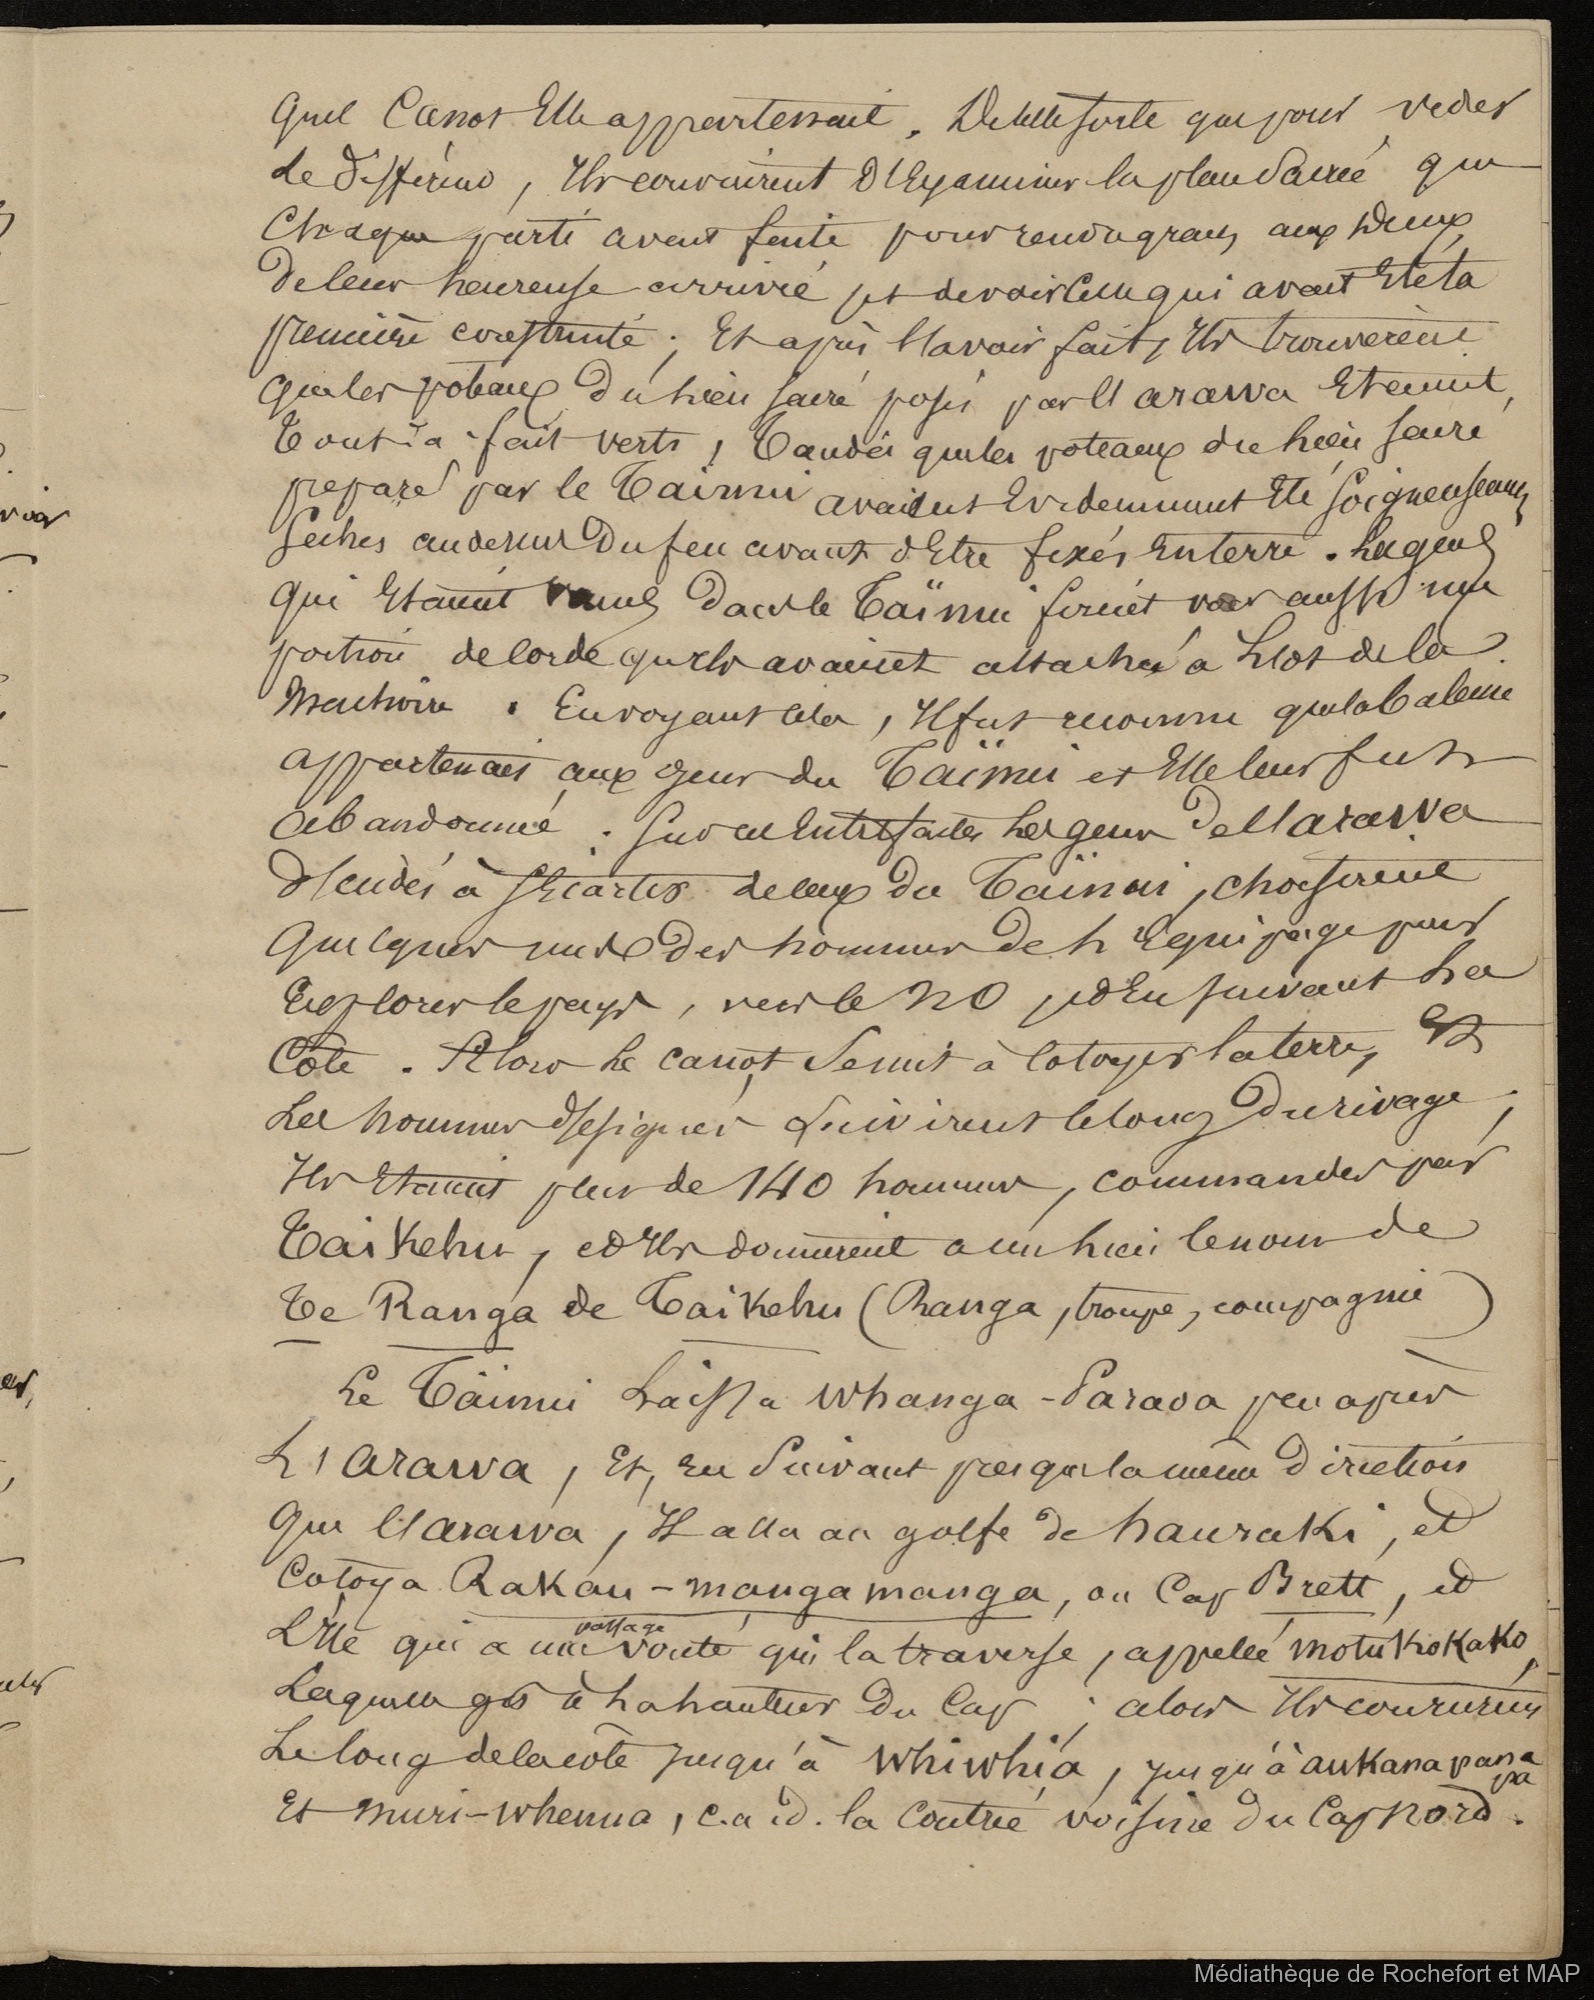 quel Canot Elle appartenait. De telle sorte que pour vider
le différend, Ils convinrent d'Examiner la place Sacrée que
Chaque parti avait faite pour rendre graces aux Dieux
de leur heureuse arrivée et de voir celle qui avait Eté la
première construite ; Et après l'avoir fait, Ils trouverent
que les poteaux du lieu sacré posés par l'arawa Etaient,
Tout à fait verts, Tandis que les poteaux du lieu sacré
preparé par le Taïnui avaient Evidemment Eté soigneusement
séchés au dessus du feu avant d'Etre fixés En terre. Les gens
qui Etaient venus dans le Taïnui firent voir aussi une
portion de corde qu'ils avaient attachée à L'os de la
Machoire. En voyant cela, Il fut reconnu que la baleine
appartenait aux gens du Taïnui et Elle leur fut
abandonnée. Sur ces Entrefaites Les gens de l'arawa
décidés à s'Ecarter de ceux du Taïnui, choisirent
quelques uns des hommes de L'Equipage pour
Explorer le pays, vers le NO, et En suivant La
Côte. Alors Le canot se mit à cotoyer la terre, Et
Les hommes désignés suivirent le long du rivage ;
Ils Etaient plus de 140 hommes, commandés par
Taikehu, et Ils donnerent à un lieu le nom de
Te Ranga de Taikehu (Ranga, troupe, compagnie)
Le Taïnui Laissa Whanga-Paraoa peu après
L'arawa, Et, En Suivant presque la même direction
que l'arawa, Il alla au golfe de hauraki, et
Cotoya Rakau-mangamanga, ou Cap Brett, et
L'Ile qui a un passage vouté qui la traverse, appelée Motukokako,
Laquelle git à La hauteur du Cap ; alors Ils coururent
Le long de la cote jusqu'à Whiwhia, jusqu'à aukanapanapa
Et muri-whenua, c.a.d. la Contrée voisine du Cap nord.
Médiathèque de Rochefort et MAP